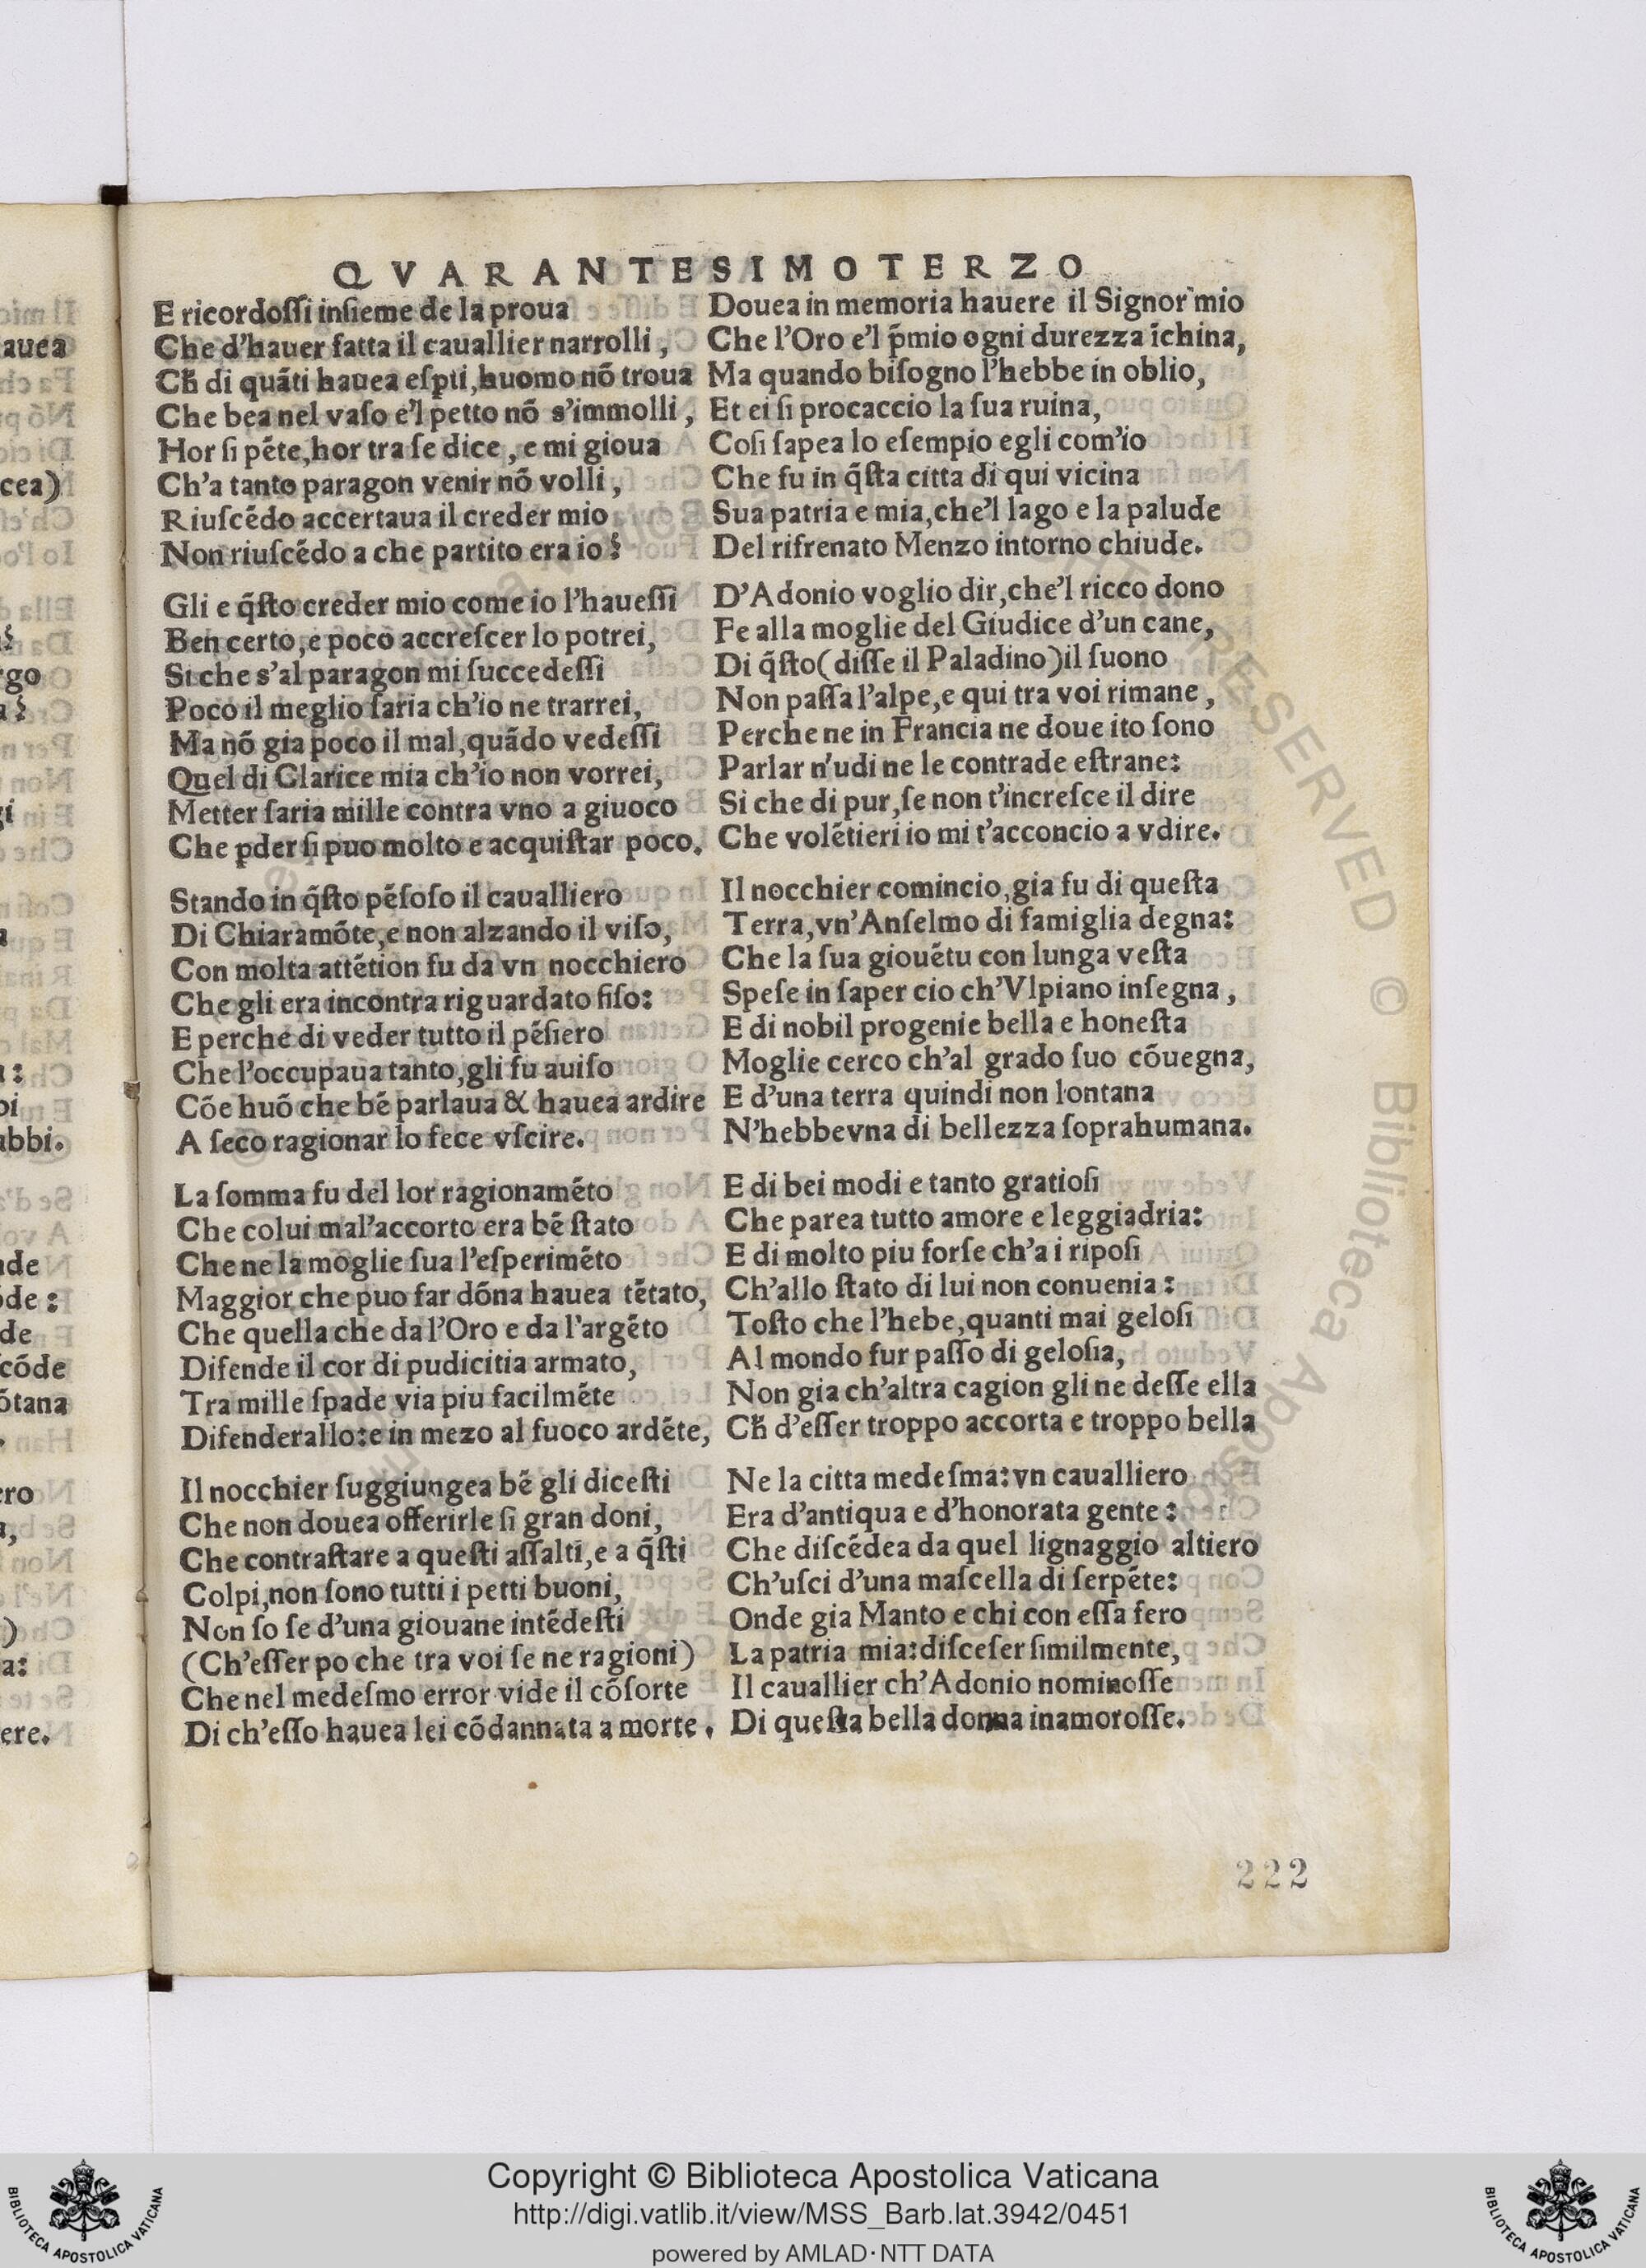 QVARANTESIMOTERZO
E ricordoſſi inſieme de la proua
Che d'hauer fatta il cauallier narrolli,
Ch̄ di quāti hauea eſꝑti, huomo nō troua
Che bea nel vaſo e'l petto nō s'immolli,
Hor ſi pēte, hor tra ſe dice, e mi gioua
Ch'a tanto paragon venir nō volli,
Riuſcēdo accertaua il creder mio
Non riuſcēdo a che partito era io?
Gli e q̄ſto creder mio come io l'haueſſi
Ben certo, e poco accreſcer lo potrei,
Si che s'al paragon mi ſuccedeſſi
Poco il meglio ſaria ch'io ne trarrei,
Ma nō gia poco il mal, quādo vedeſſi
Quel di Clarice mia ch'io non vorrei,
Metter ſaria mille contra vno a giuoco
Che ꝑder ſi puo molto e acquiſtar poco.
Stando in q̄ſto pēſoſo il caualliero
Di Chiaramōte, e non alzando il viſo,
Con molta attētion fu da vn nocchiero
Che gli era incontra riguardato fiſo:
E perche di veder tutto il pēſiero
Che l'occupaua tanto, gli fu auiſo
Cōe huō che bē parlaua & hauea ardire
A ſeco ragionar lo fece vſcire.
La ſomma fu del lor ragionamēto
Che colui mal'accorto era bē ſtato
Che ne la moglie ſua l'eſperimēto
Maggior che puo far dōna hauea tētato,
Che quella che da l'Oro e da l'argēto
Difende il cor di pudicitia armato,
Tra mille ſpade via piu facilmēte
Difenderallo: e in mezo al fuoco ardēte,
Il nocchier ſuggiungea bē gli diceſti
Che non douea offerirle ſi gran doni,
Che contraſtare a queſti aſſalti, e a q̄ſti
Colpi, non ſono tutti i petti buoni,
Non ſo ſe d'una giouane intēdeſti
(Ch'eſſer po che tra voi ſe ne ragioni)
Che nel medeſmo error vide il cōſorte
Di ch'eſſo hauea lei cōdannata a morte.
Douea in memoria hauere il Signor mio
Che l'Oro e'l p̄mio ogni durezza īchina,
Ma quando biſogno l'hebbe in oblio,
Et ei ſi procaccio la ſua ruina,
Coſi ſapea lo eſempio egli com'io
Che fu in q̄ſta citta di qui vicina
Sua patria e mia, che'l lago e la palude
Del rifrenato Menzo intorno chiude.
D'Adonio voglio dir, che'l ricco dono
Fe alla moglie del Giudice d'un cane,
Di q̄ſto (diſſe il Paladino) il ſuono
Non paſſa l'alpe, e qui tra voi rimane,
Perche ne in Francia ne doue ito ſono
Parlar n'udi ne le contrade eſtrane:
Si che di pur, ſe non t'increſce il dire
Che volētieri io mi t'acconcio a vdire.
Il nocchier comincio, gia fu di queſta
Terra, vn'Anſelmo di famiglia degna:
Che la ſua giouētu con lunga veſta
Speſe in ſaper cio ch'Vlpiano inſegna,
E di nobil progenie bella e honeſta
Moglie cerco ch'al grado ſuo cōuegna,
E d'una terra quindi non lontana
N'hebbevna di bellezza ſoprahumana.
E di bei modi e tanto gratioſi
Che parea tutto amore e leggiadria:
E di molto piu forſe ch'a i ripoſi
Ch'allo ſtato di lui non conuenia:
Toſto che l'hebe, quanti mai geloſi
Al mondo fur paſſo di geloſia,
Non gia ch'altra cagion gli ne deſſe ella
Ch̄ d'eſſer troppo accorta e troppo bella
Ne la citta medeſma: vn caualliero
Era d'antiqua e d'honorata gente:
Che diſcēdea da quel lignaggio altiero
Ch'uſci d'una maſcella di ſerpēte:
Onde gia Manto e chi con eſſa fero
La patria mia: diſceſer ſimilmente,
Il cauallier ch'Adonio nominoſſe
Di queſta bella donna inamoroſſe.
222
Copyright © Biblioteca Apostolica Vaticana
http://digi.vatlib.it/view/MSS_Barb.lat.3942/0451
powered by AMLAD·NTT DATA
BIBLIOTECA APOSTOLICA VATICANA
BIBLIOTECA APOSTOLICA VATICANA